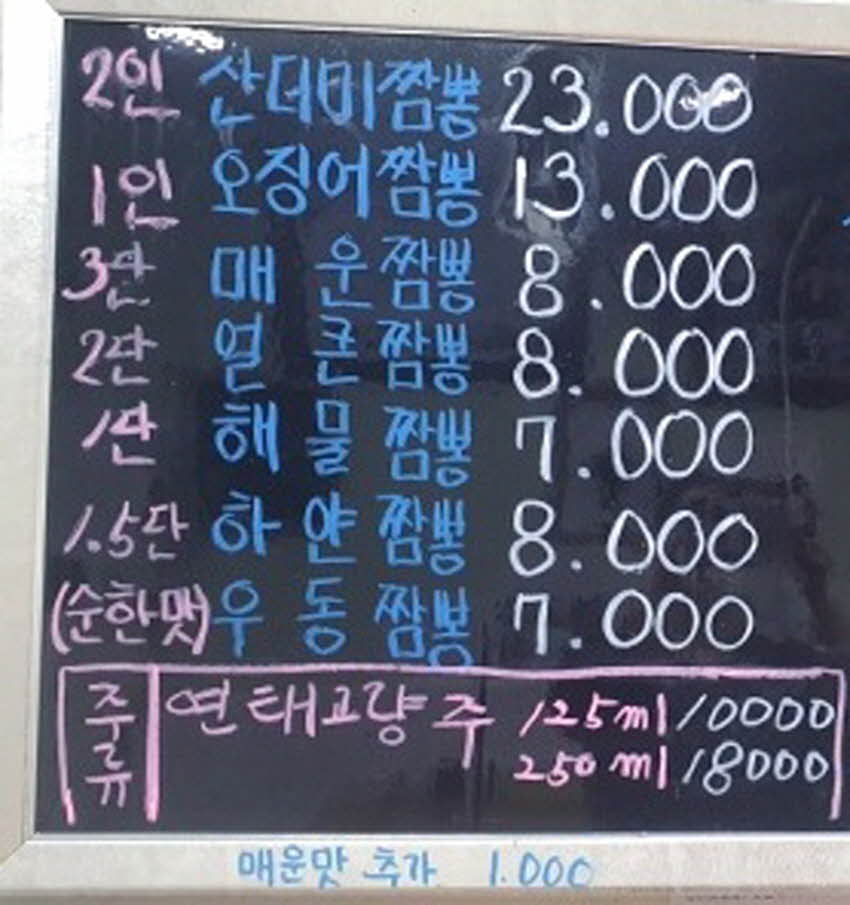 2인 산더미짬뽕 23.000
1인 오징어짬뽕 13.000
3단 매운짬뽕 8.000
2단 얼큰짬뽕 8.000
1단 해물짬뽕 7.000
1.5단 하얀짬뽕 8.000
(순한맛) 우동짬뽕 7.000
주류 연태고량주 125ml 10000
250ml 18000
매운맛 추가 1.000